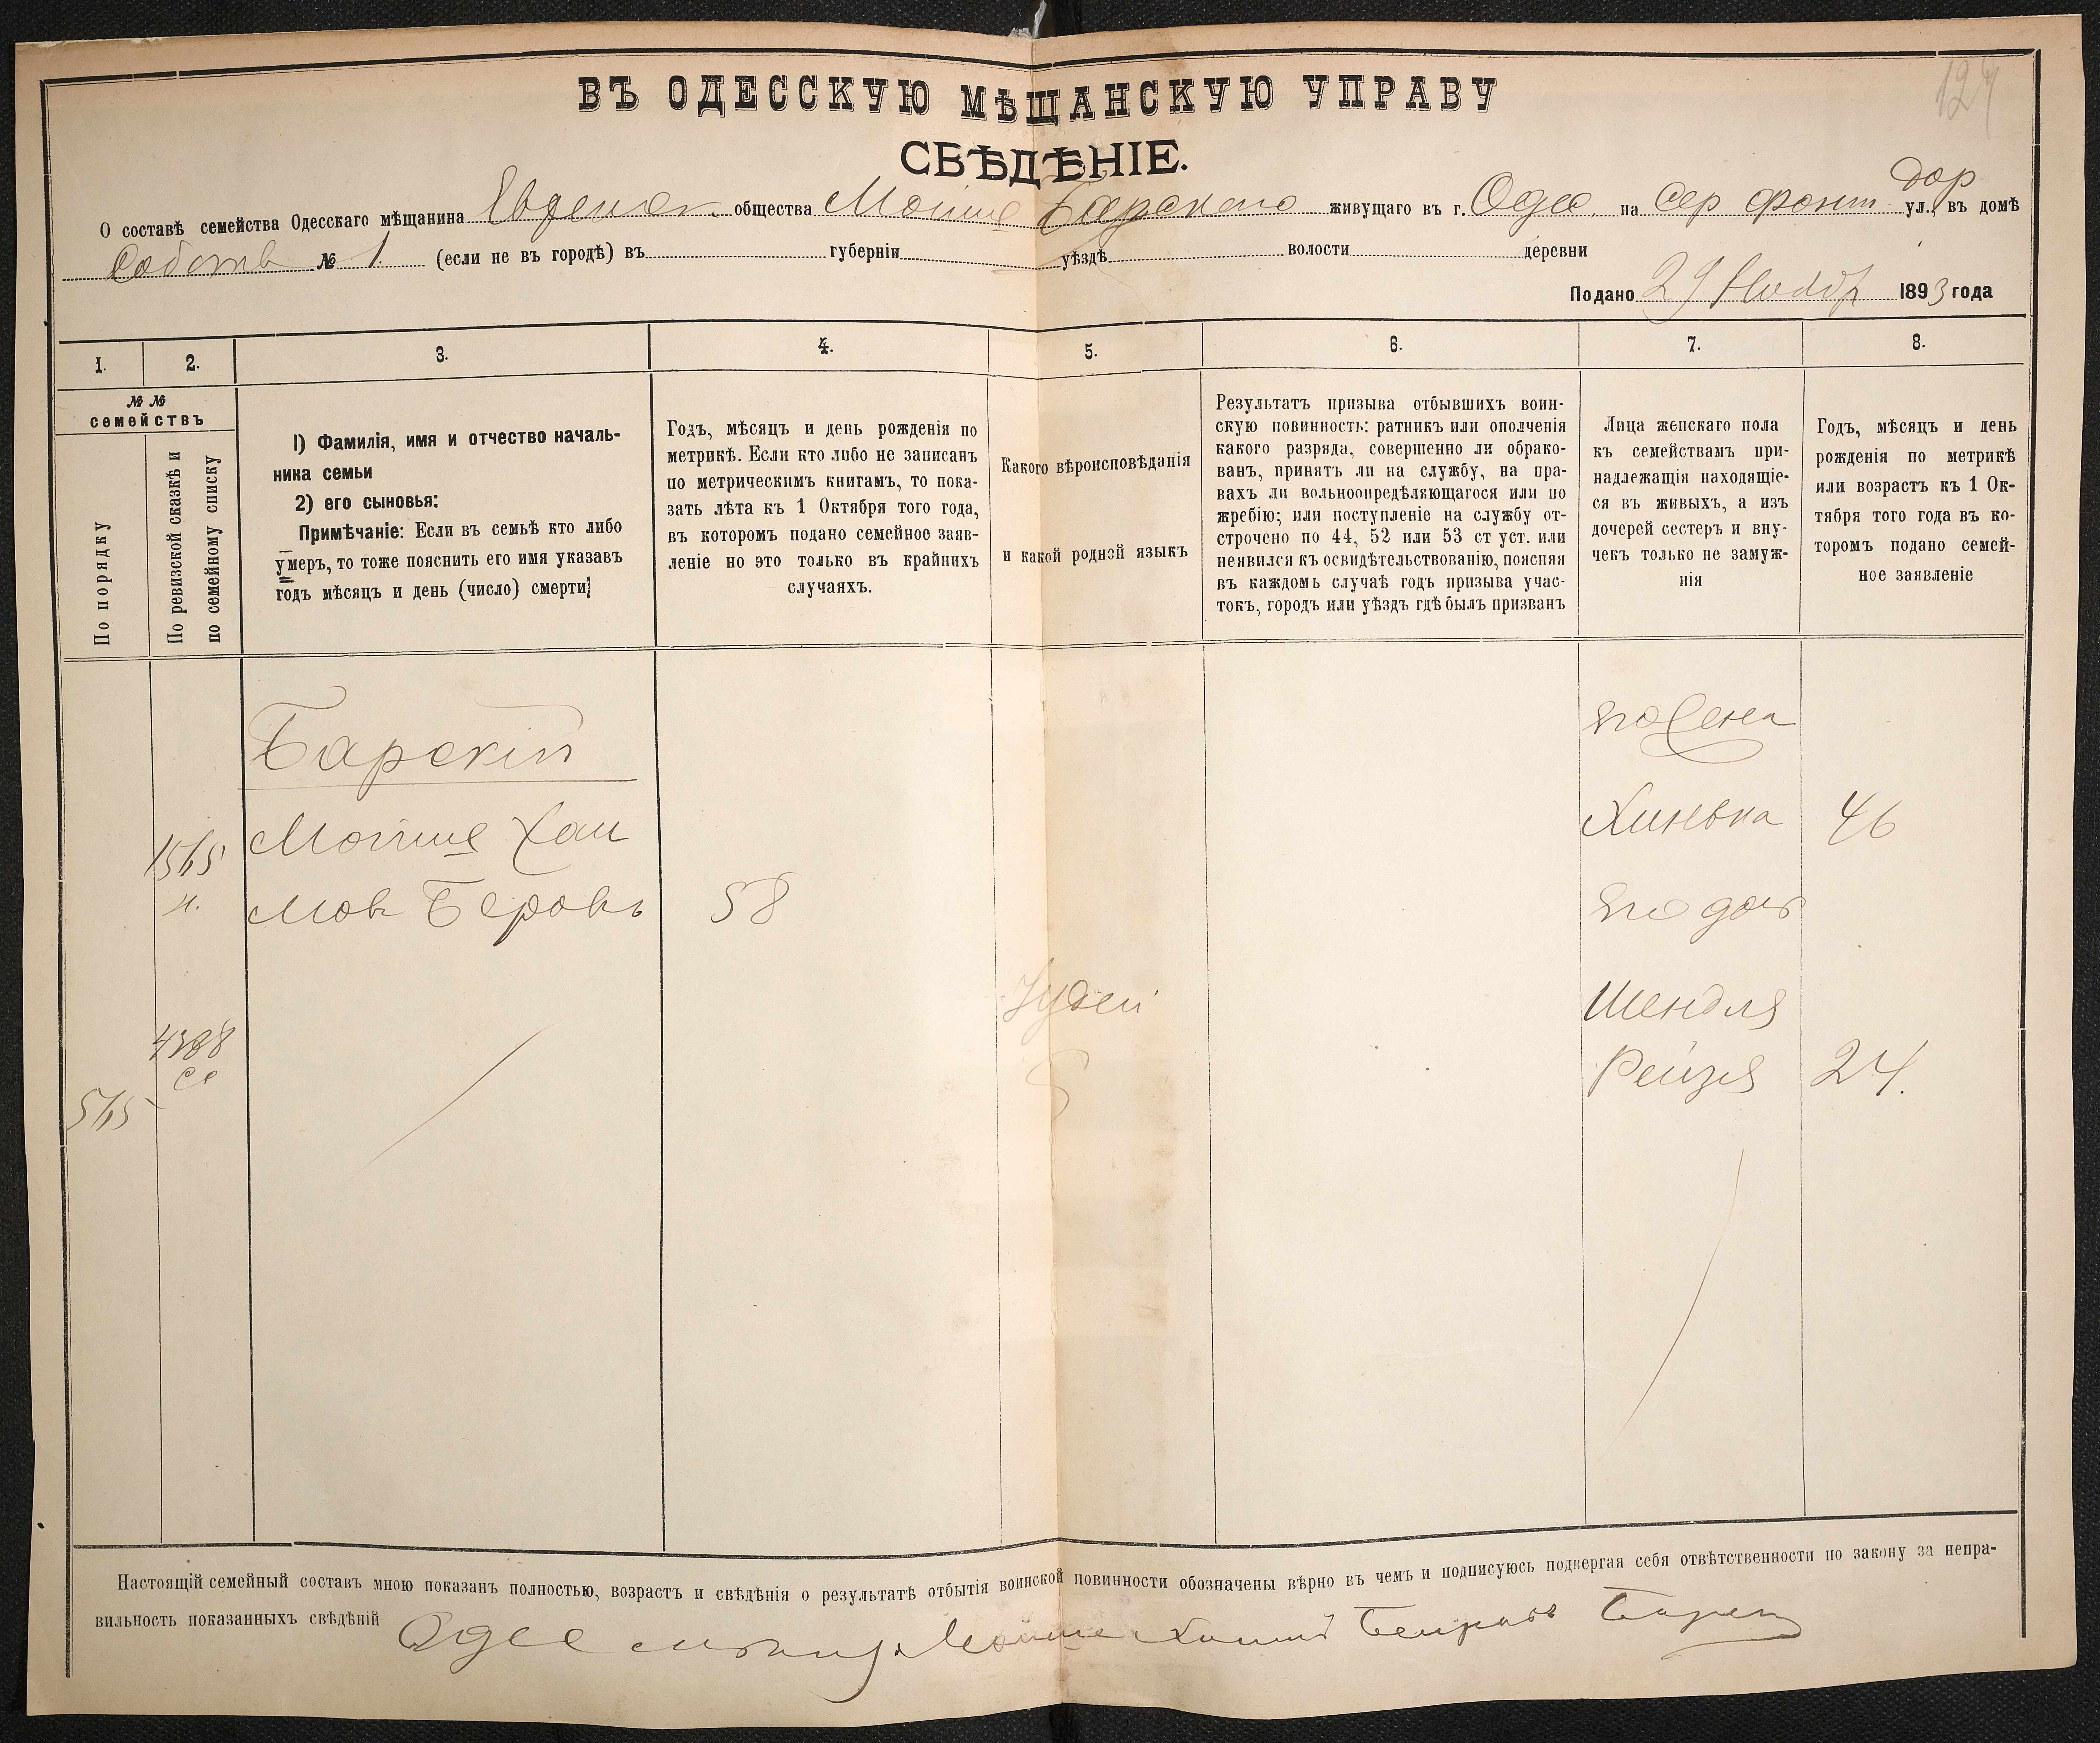 124
ВЪ ОДЕССКУЮ МѢЩАНСКУЮ УПРАВУ
СВѢДѢНІЕ.
О составѣ семейства Одесскаго мѣщанина Еврейск общества Мойше Барскаго живущаго въ г. Одес на Сер фонт дор ул., въ домѣ
Собств № 1. (если не въ городѣ) въ губерніи уѣздѣ волости деревни
Подано 29 Нояб 1893 года
1. 2. 3. 4. 5. 6. 7. 8.
№ №
семействъ
По порядку
По ревизской сказкѣ и
по семейному списку
1) Фамилія, имя и отчество началь-
ника семьи
2) его сыновья:
Примѣчаніе: Если въ семьѣ кто либо
умеръ, то тоже пояснить его имя указавъ
годъ мѣсяцъ и день (число) смерти]
Годъ, мѣсяцъ и день рожденія по
метрикѣ. Если кто либо не записанъ
по метрическимъ книгамъ, то пока-
зать лѣта къ 1 Октября того года,
въ которомъ подано семейное заяв-
леніе но это только въ крайнихъ
случаяхъ.
Какого вѣроисповѣданія
и какой родной языкъ
Результатъ призыва отбывшихъ воин-
скую повинность: ратникъ или ополченія
какого разряда, совершенно ли обрако-
ванъ, принятъ ли на службу, на пра-
вахъ ли вольноопредѣляющагося или по
жребію; или поступленіе на службу от-
строчено по 44, 52 или 53 ст уст. или
неявился къ освидѣтельствованію, поясняя
въ каждомъ случаѣ годъ призыва учас-
токъ, городъ или уѣздъ гдѣ былъ призванъ
Лица женскаго пола
къ семействамъ при-
надлежащія находящіе-
ся въ живыхъ, а изъ
дочерей сестеръ и вну-
чекъ только не замуж-
нія
Годъ, мѣсяцъ и день
рожденія по метрикѣ
или возрастъ къ 1 Ок-
тября того года въ ко-
торомъ подано семей-
ное заявленіе
Барскій
его жена
Мойше Хаи
Хинька 46
1565
н.
мовъ Беровъ 58
его доч
Іудей
Шендля
4388
се
Рейзя 24.
565
Настоящій семейный составъ мною показанъ полностью, возрастъ и свѣдѣнія о результатѣ отбытія воинской повинности обозначены вѣрно въ чемъ и подписуюсь подвергая себя отвѣтственности по закону за непра-
вильность показанныхъ свѣдѣній Одес мѣщ. Мойше Хаимъ Беировъ Барск